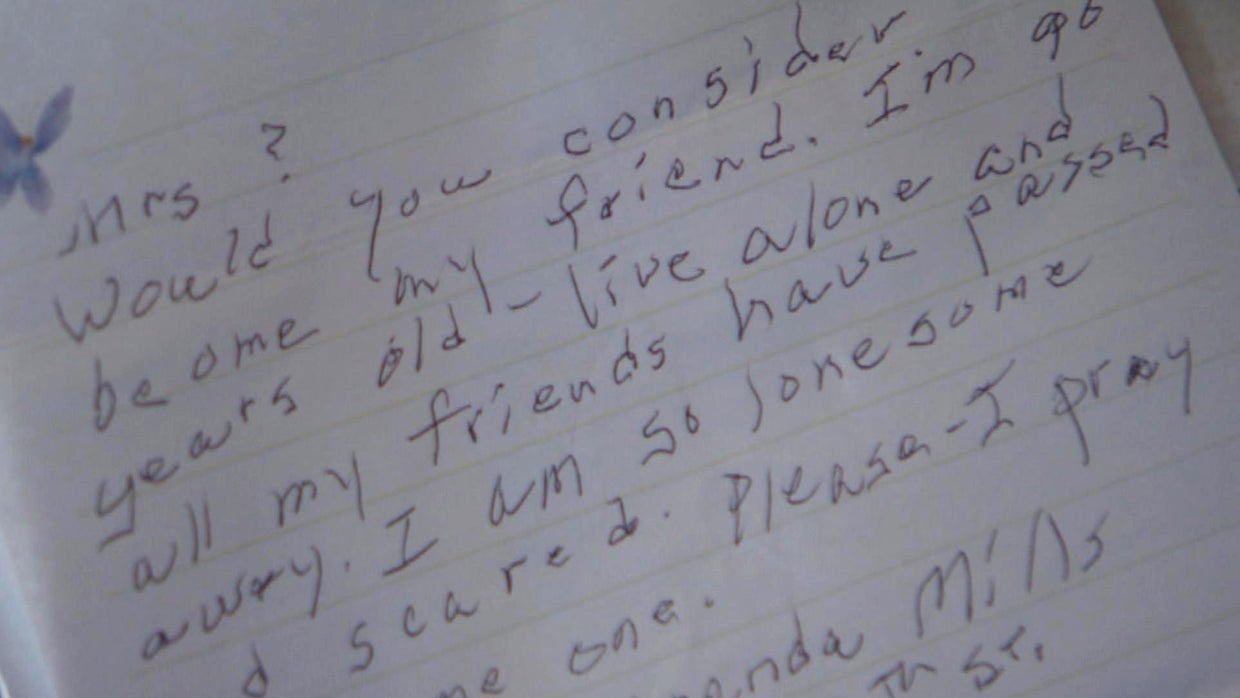 Mrs ?
Would you consider
be ome my friend. I'm 90
years old - live alone and
all my friends have passed
away. I am so lonesome
scared. Please - I pray
one.
Mills
St.